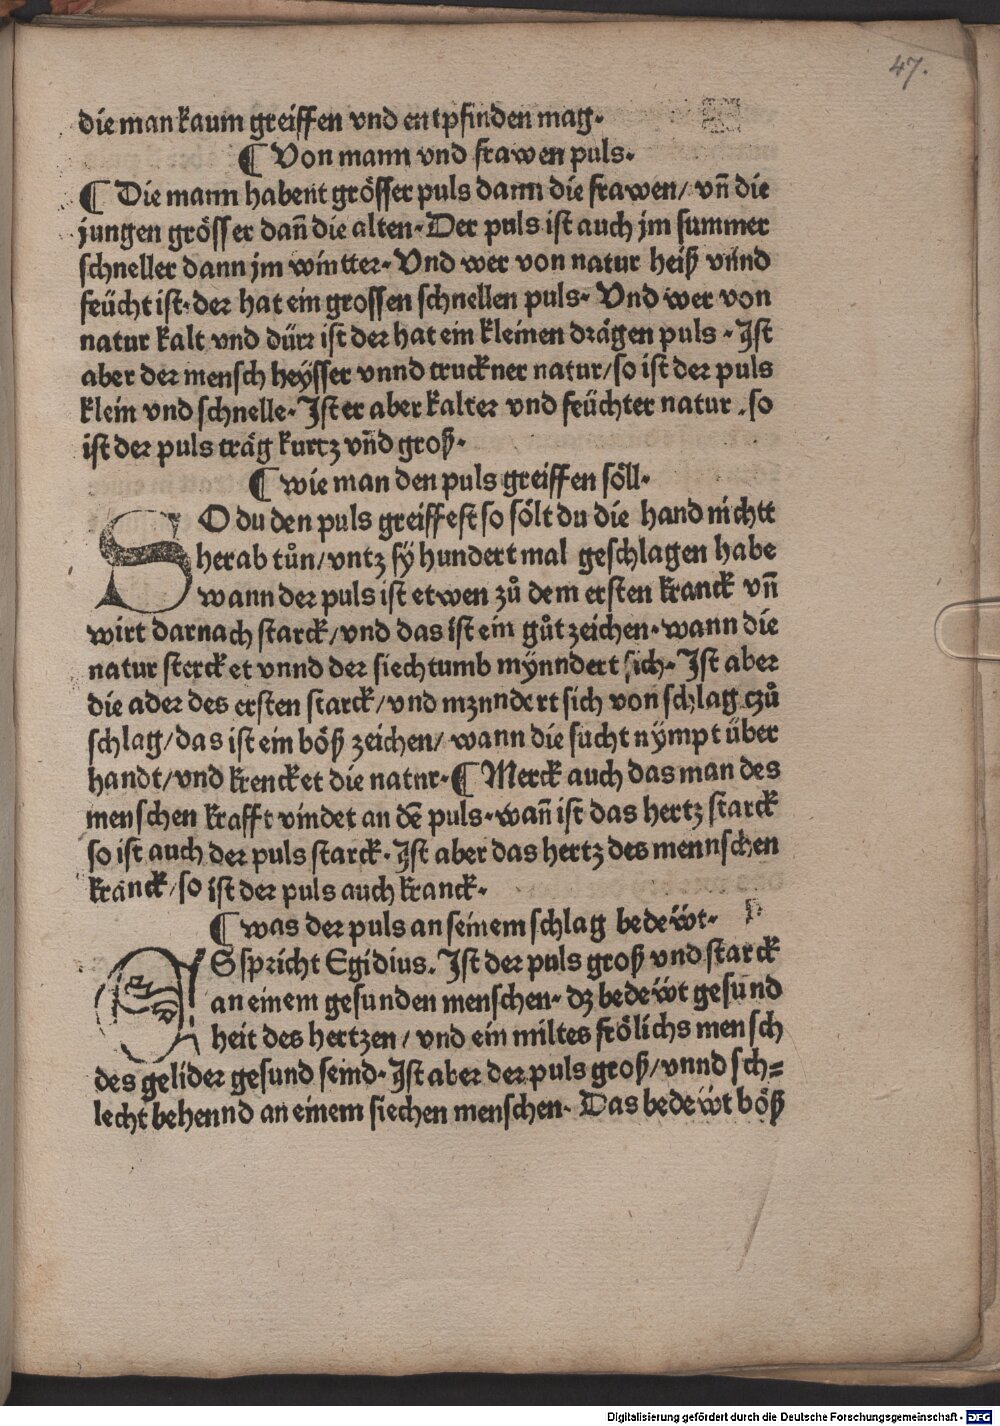 47.
die man kaum greiffen vnd entpfinden mag.
¶ Von mann vnd frawen puls.
¶ Die mann habent grösser puls dann die frawen/ vn̄ die
jungen grösser dan̄ die alten. Der puls ist auch jm summer
schneller dann jm wintter. Vnd wer von natur heiß vnnd
feücht ist. der hat ein grossen schnellen puls. Vnd wer von
natur kalt vnd dürr ist der hat ein kleinen drägen puls. Ist
aber der mensch heysser vnnd truckner natur/ so ist der puls
klein vnd schnelle. Ist er aber kalter vnd feüchter natur. so
ist der puls träg kurtz vn̄d groß.
¶ wie man den puls greiffen söll.
SO du den puls greiffest so sölt du die hand nichtt
herab tůn/ vntz sÿ hundert mal geschlagen habe
wann der puls ist etwen zů dem ersten kranck vn̄
wirt darnach starck/ vnd das ist ein gůt zeichen. wann die
natur stercket vnnd der siechtumb mÿnndert sich. Ist aber
die ader des ersten starck/ vnd mznndert sich von schlag czů
schlag/ das ist ein böß zeichen/ wann die sucht nÿmpt über
handt/ vnd krencket die natnr. ¶ Merck auch das man des
menschen krafft vindet an dē puls. wan̄ ist das hertz starck
so ist auch der puls starck. Ist aber das hertz des mennschen
kranck/ so ist der puls auch kranck.
¶ was der puls an seinem schlag bedewt.
ES spricht Egidius. Ist der puls groß vnd starck
an einem gesunden menschen. dz bedewt gesund
heit des hertzen/ vnd ein miltes frölichs mensch
des gelider gesund seind. Ist aber der puls groß/ vnnd sch=
lecht behennd an einem siechen menschen. Das bedewt böß
Digitalisierung gefördert durch die Deutsche Forschungsgemeinschaft - DFG